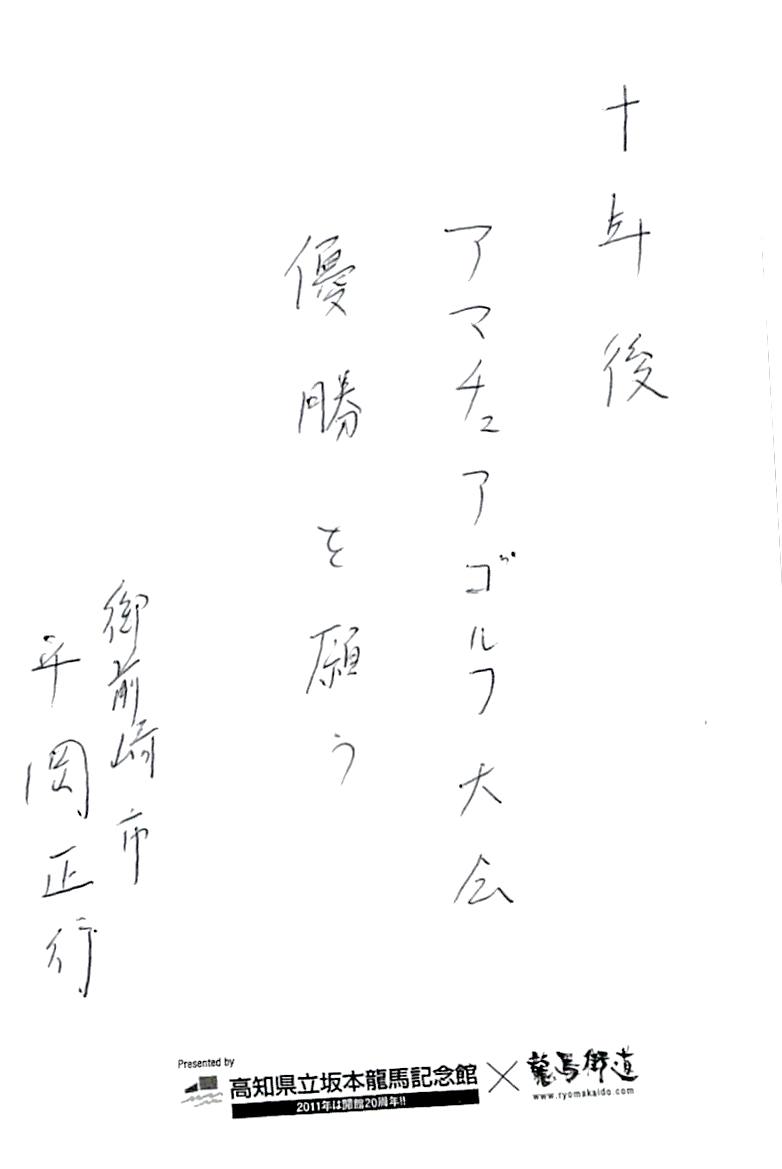 十年後
アマチュアゴルフ大会
優勝を願う
御前崎市
平岡正行
Presented by
高知県立坂本龍馬記念館×龍馬街道
2011年は開館20周年!!
www.ryomakaido.com